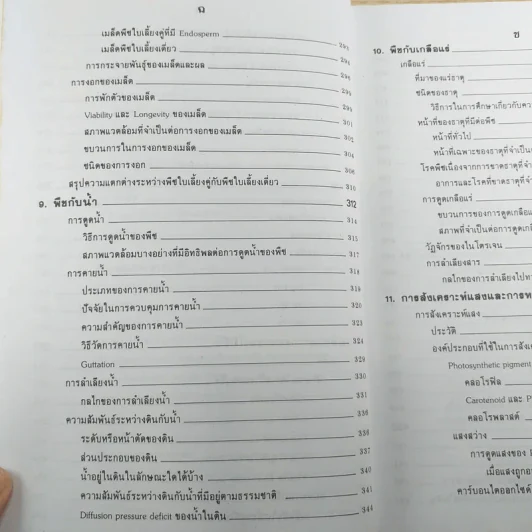 ฉ
เมล็ดพืชใบเลี้ยงคู่ที่มี Endosperm 295
เมล็ดพืชใบเลี้ยงเดี่ยว
การกระจายพันธุ์ของเมล็ดและผล 296
การงอกของเมล็ด
การพักตัวของเมล็ด
Viability และ Longevity ของเมล็ด 301
สภาพแวดล้อมที่จำเป็นต่อการงอกของเมล็ด 302
ขบวนการในการงอกของเมล็ด 304
ชนิดของการงอก 306
สรุปความแตกต่างระหว่างพืชใบเลี้ยงคู่กับพืชใบเลี้ยงเดี่ยว 310
9. พืชกับน้ำ 312
การดูดน้ำ 314
วิธีการดูดน้ำของพืช 315
สภาพแวดล้อมบางอย่างที่มีอิทธิพลต่อการดูดน้ำของพืช 317
การคายน้ำ 318
ประเภทของการคายน้ำ 319
ปัจจัยในการควบคุมการคายน้ำ 320
ความสำคัญของการคายน้ำ 323
วิธีวัดการคายน้ำ 324
Guttation 329
การลำเลียงน้ำ 330
กลไกของการลำเลียงน้ำ 331
ความสัมพันธ์ระหว่างดินกับน้ำ 336
ระดับหรือหน้าตัดของดิน 336
ส่วนประกอบของดิน 337
น้ำอยู่ในดินในลักษณะใดได้บ้าง 340
ความสัมพันธ์ระหว่างดินกับน้ำที่มีอยู่ตามธรรมชาติ 341
Diffusion pressure deficit ของน้ำในดิน 344
ช
10. พืชกับเกลือแร่
เกลือแร่
ที่มาของแร่ธาตุ
ชนิดของธาตุ
วิธีการในการศึกษาเกี่ยวกับคว
หน้าที่ของธาตุที่มีต่อพืช
หน้าที่ทั่วไป
หน้าที่เฉพาะของธาตุที่จำเป็น
โรคพืชเนื่องจากการขาดธาตุที่จำ
อาการและโรคที่ขาดธาตุที่จำ
การดูดเกลือแร่
ขบวนการของการดูดเกลือแ
สภาพที่จำเป็นต่อการดูดเกลื
วัฏจักรของไนโตรเจน
การลำเลียงสาร
กลไกของการลำเลียงไปท
11. การสังเคราะห์แสงและการห
การสังเคราะห์แสง
ประวัติ
องค์ประกอบที่ใช้ในการสังเ
Photosynthetic pigment
คลอโรฟิล
Carotenoid และ P
คลอโรพลาสต์
แสงสว่าง
การดูดแสงของ
เมื่อแสงถูกด
คาร์บอนไดออกไซด์